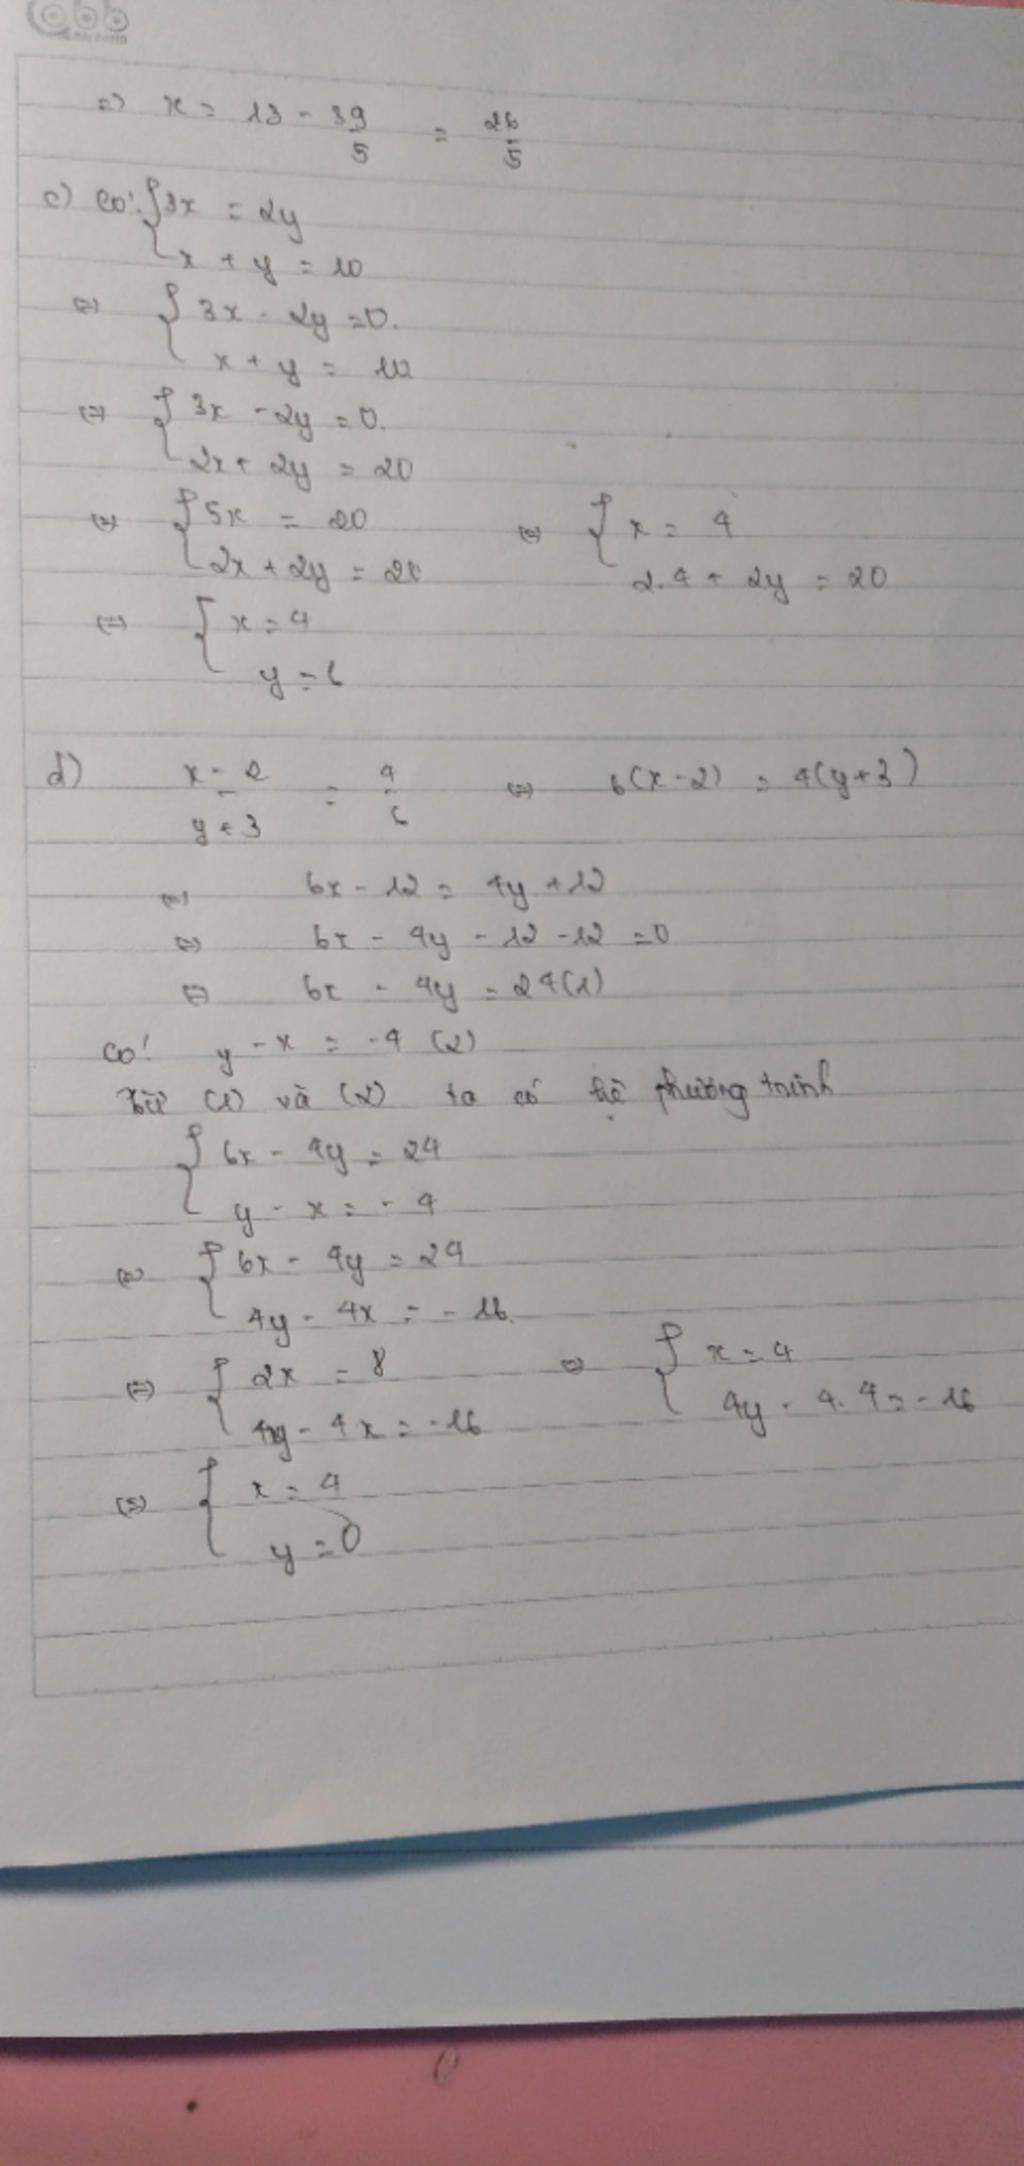 => x = 13 - 39/5 = 26/5
c) có: { 3x = 2y
x + y = 10
<=> { 3x - 2y = 0.
x + y = 10
<=> { 3x - 2y = 0.
2x + 2y = 20
<=> { 5x = 20 <=> { x = 4
2x + 2y = 20 2.4 + 2y = 20
<=> { x = 4
y = 6
d) x - 2 / y + 3 = 4/6 <=> 6(x - 2) = 4(y + 3)
<=> 6x - 12 = 4y + 12
<=> 6x - 4y - 12 - 12 = 0
<=> 6x - 4y = 24 (1)
Có: y - x = -4 (2)
Từ (1) và (2) ta có hệ phương trình
{ 6x - 4y = 24
y - x = -4
<=> { 6x - 4y = 24
4y - 4x = -16.
<=> { 2x = 8 <=> { x = 4
4y - 4x = -16 4y - 4.4 = -16
<=> { x = 4
y = 0